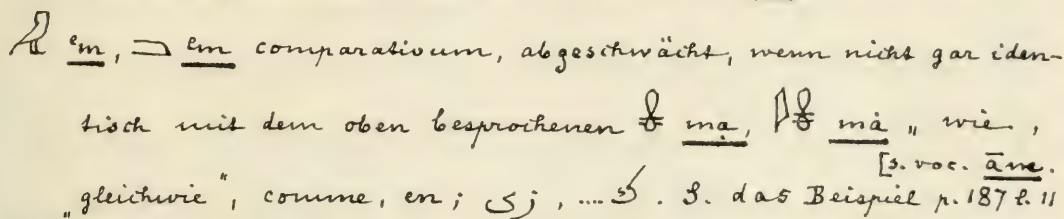 𓅓 em, 𓐝 em comparativum, abgeschwächt, wenn nicht gar iden-
tisch mit dem oben besprochenen ma, má „wie,
[s. voc. ām.
„gleichwie“, comme, en; زى, .... ك. S. das Beispiel p. 187 l. 11